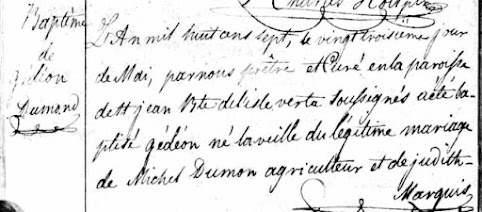 Charles
Baptême
de
Gédéon
Dumond
L'An mil huit cens sept, le vingt troisième jour
de Mai, par nous prêtre et Curé en la paroisse
de St jean Bte de l'isle verte soussignés a été ba-
ptisé gédéon né la veille du légitime mariage
de Michel Dumon agriculteur et de judith-
Marquis